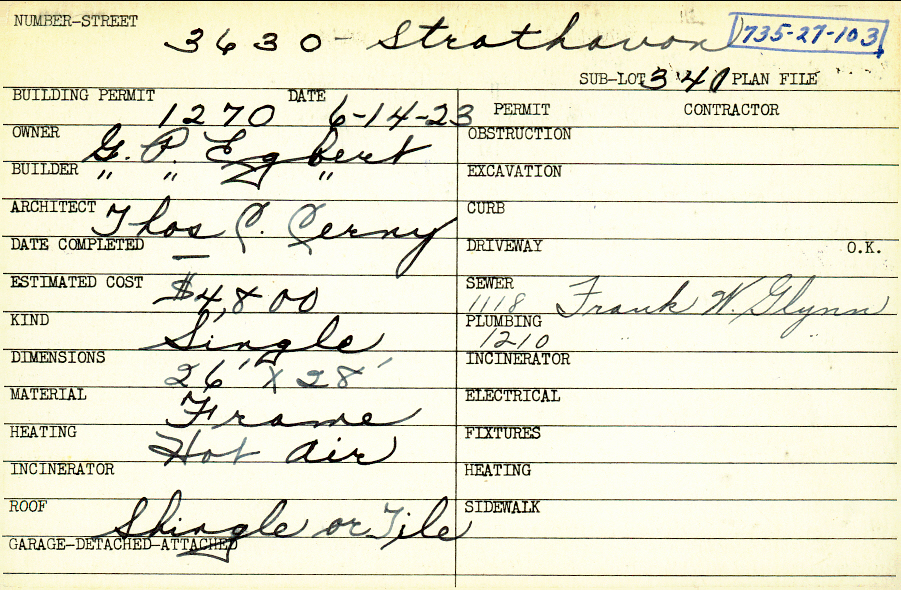 NUMBER-STREET
3630 - Strathavon 735-27-103
SUB-LOT 340 PLAN FILE
BUILDING PERMIT 1270 DATE 6-14-23 PERMIT CONTRACTOR
OWNER G. P. Egbert OBSTRUCTION
BUILDER " " " EXCAVATION
ARCHITECT Thos C. Cerny CURB
DATE COMPLETED — DRIVEWAY O.K.
ESTIMATED COST $4,800 SEWER 1118 Frank W. Glynn
KIND Single PLUMBING 1210
DIMENSIONS 26' X 28' INCINERATOR
MATERIAL Frame ELECTRICAL
HEATING Hot Air FIXTURES
INCINERATOR HEATING
ROOF Shingle or Tile SIDEWALK
GARAGE-DETACHED-ATTACHED